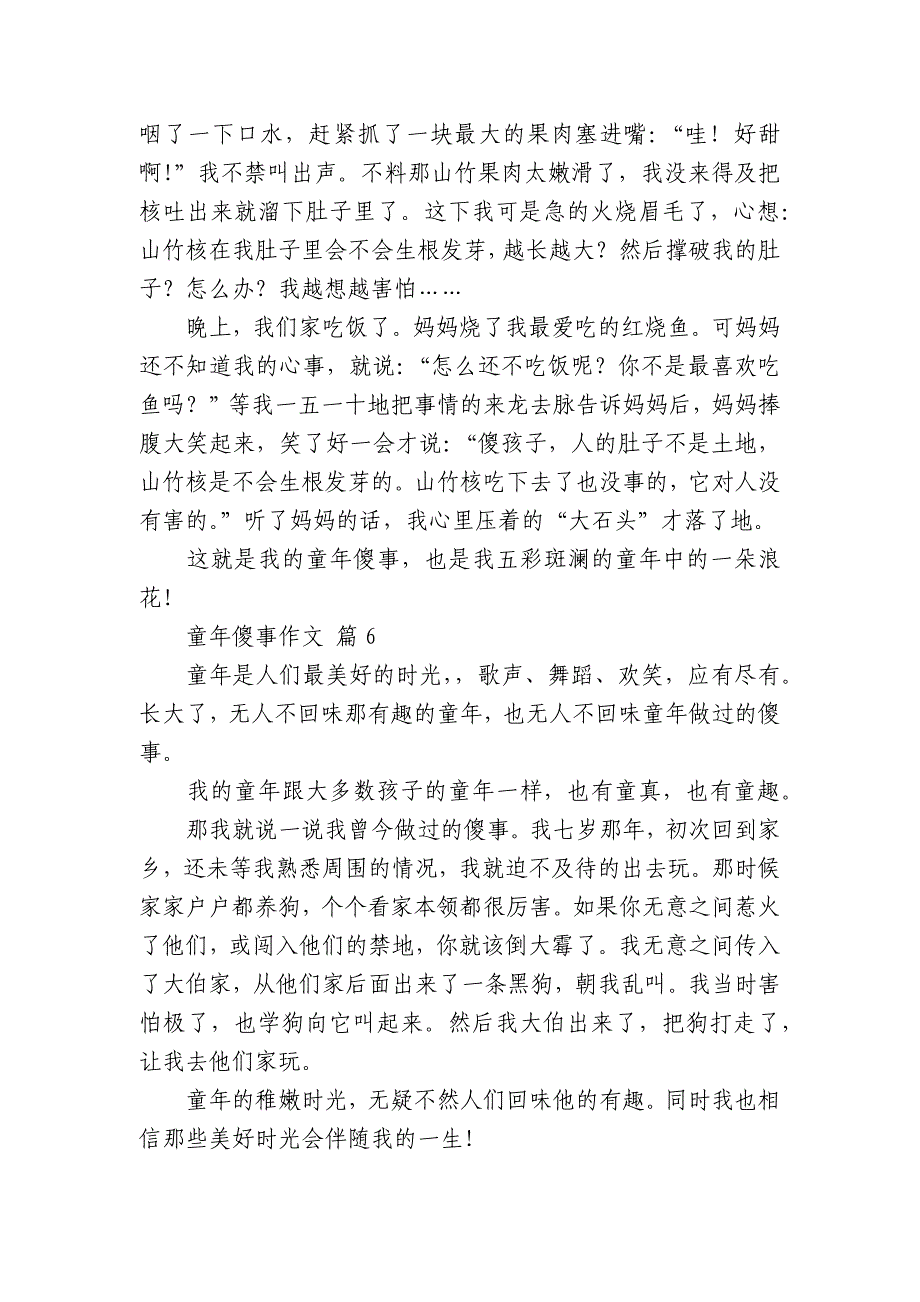 咽了一下口水，赶紧抓了一块最大的果肉塞进嘴：“哇！好甜
啊！”我不禁叫出声。不料那山竹果肉太嫩滑了，我没来得及把
核吐出来就溜下肚子里了。这下我可是急的火烧眉毛了，心想：
山竹核在我肚子里会不会生根发芽，越长越大？然后撑破我的肚
子？怎么办？我越想越害怕……
晚上，我们家吃饭了。妈妈烧了我最爱吃的红烧鱼。可妈妈
还不知道我的心事，就说：“怎么还不吃饭呢？你不是最喜欢吃
鱼吗？”等我一五一十地把事情的来龙去脉告诉妈妈后，妈妈捧
腹大笑起来，笑了好一会才说：“傻孩子，人的肚子不是土地，
山竹核是不会生根发芽的。山竹核吃下去了也没事的，它对人没
有害的。”听了妈妈的话，我心里压着的“大石头”才落了地。
这就是我的童年傻事，也是我五彩斑澜的童年中的一朵浪
花！
童年傻事作文 篇6
童年是人们最美好的时光，，歌声、舞蹈、欢笑，应有尽有。
长大了，无人不回味那有趣的童年，也无人不回味童年做过的傻
事。
我的童年跟大多数孩子的童年一样，也有童真，也有童趣。
那我就说一说我曾今做过的傻事。我七岁那年，初次回到家
乡，还未等我熟悉周围的情况，我就迫不及待的出去玩。那时候
家家户户都养狗，个个看家本领都很厉害。如果你无意之间惹火
了他们，或闯入他们的禁地，你就该倒大霉了。我无意之间传入
了大伯家，从他们家后面出来了一条黑狗，朝我乱叫。我当时害
怕极了，也学狗向它叫起来。然后我大伯出来了，把狗打走了，
让我去他们家玩。
童年的稚嫩时光，无疑不然人们回味他的有趣。同时我也相
信那些美好时光会伴随我的一生！